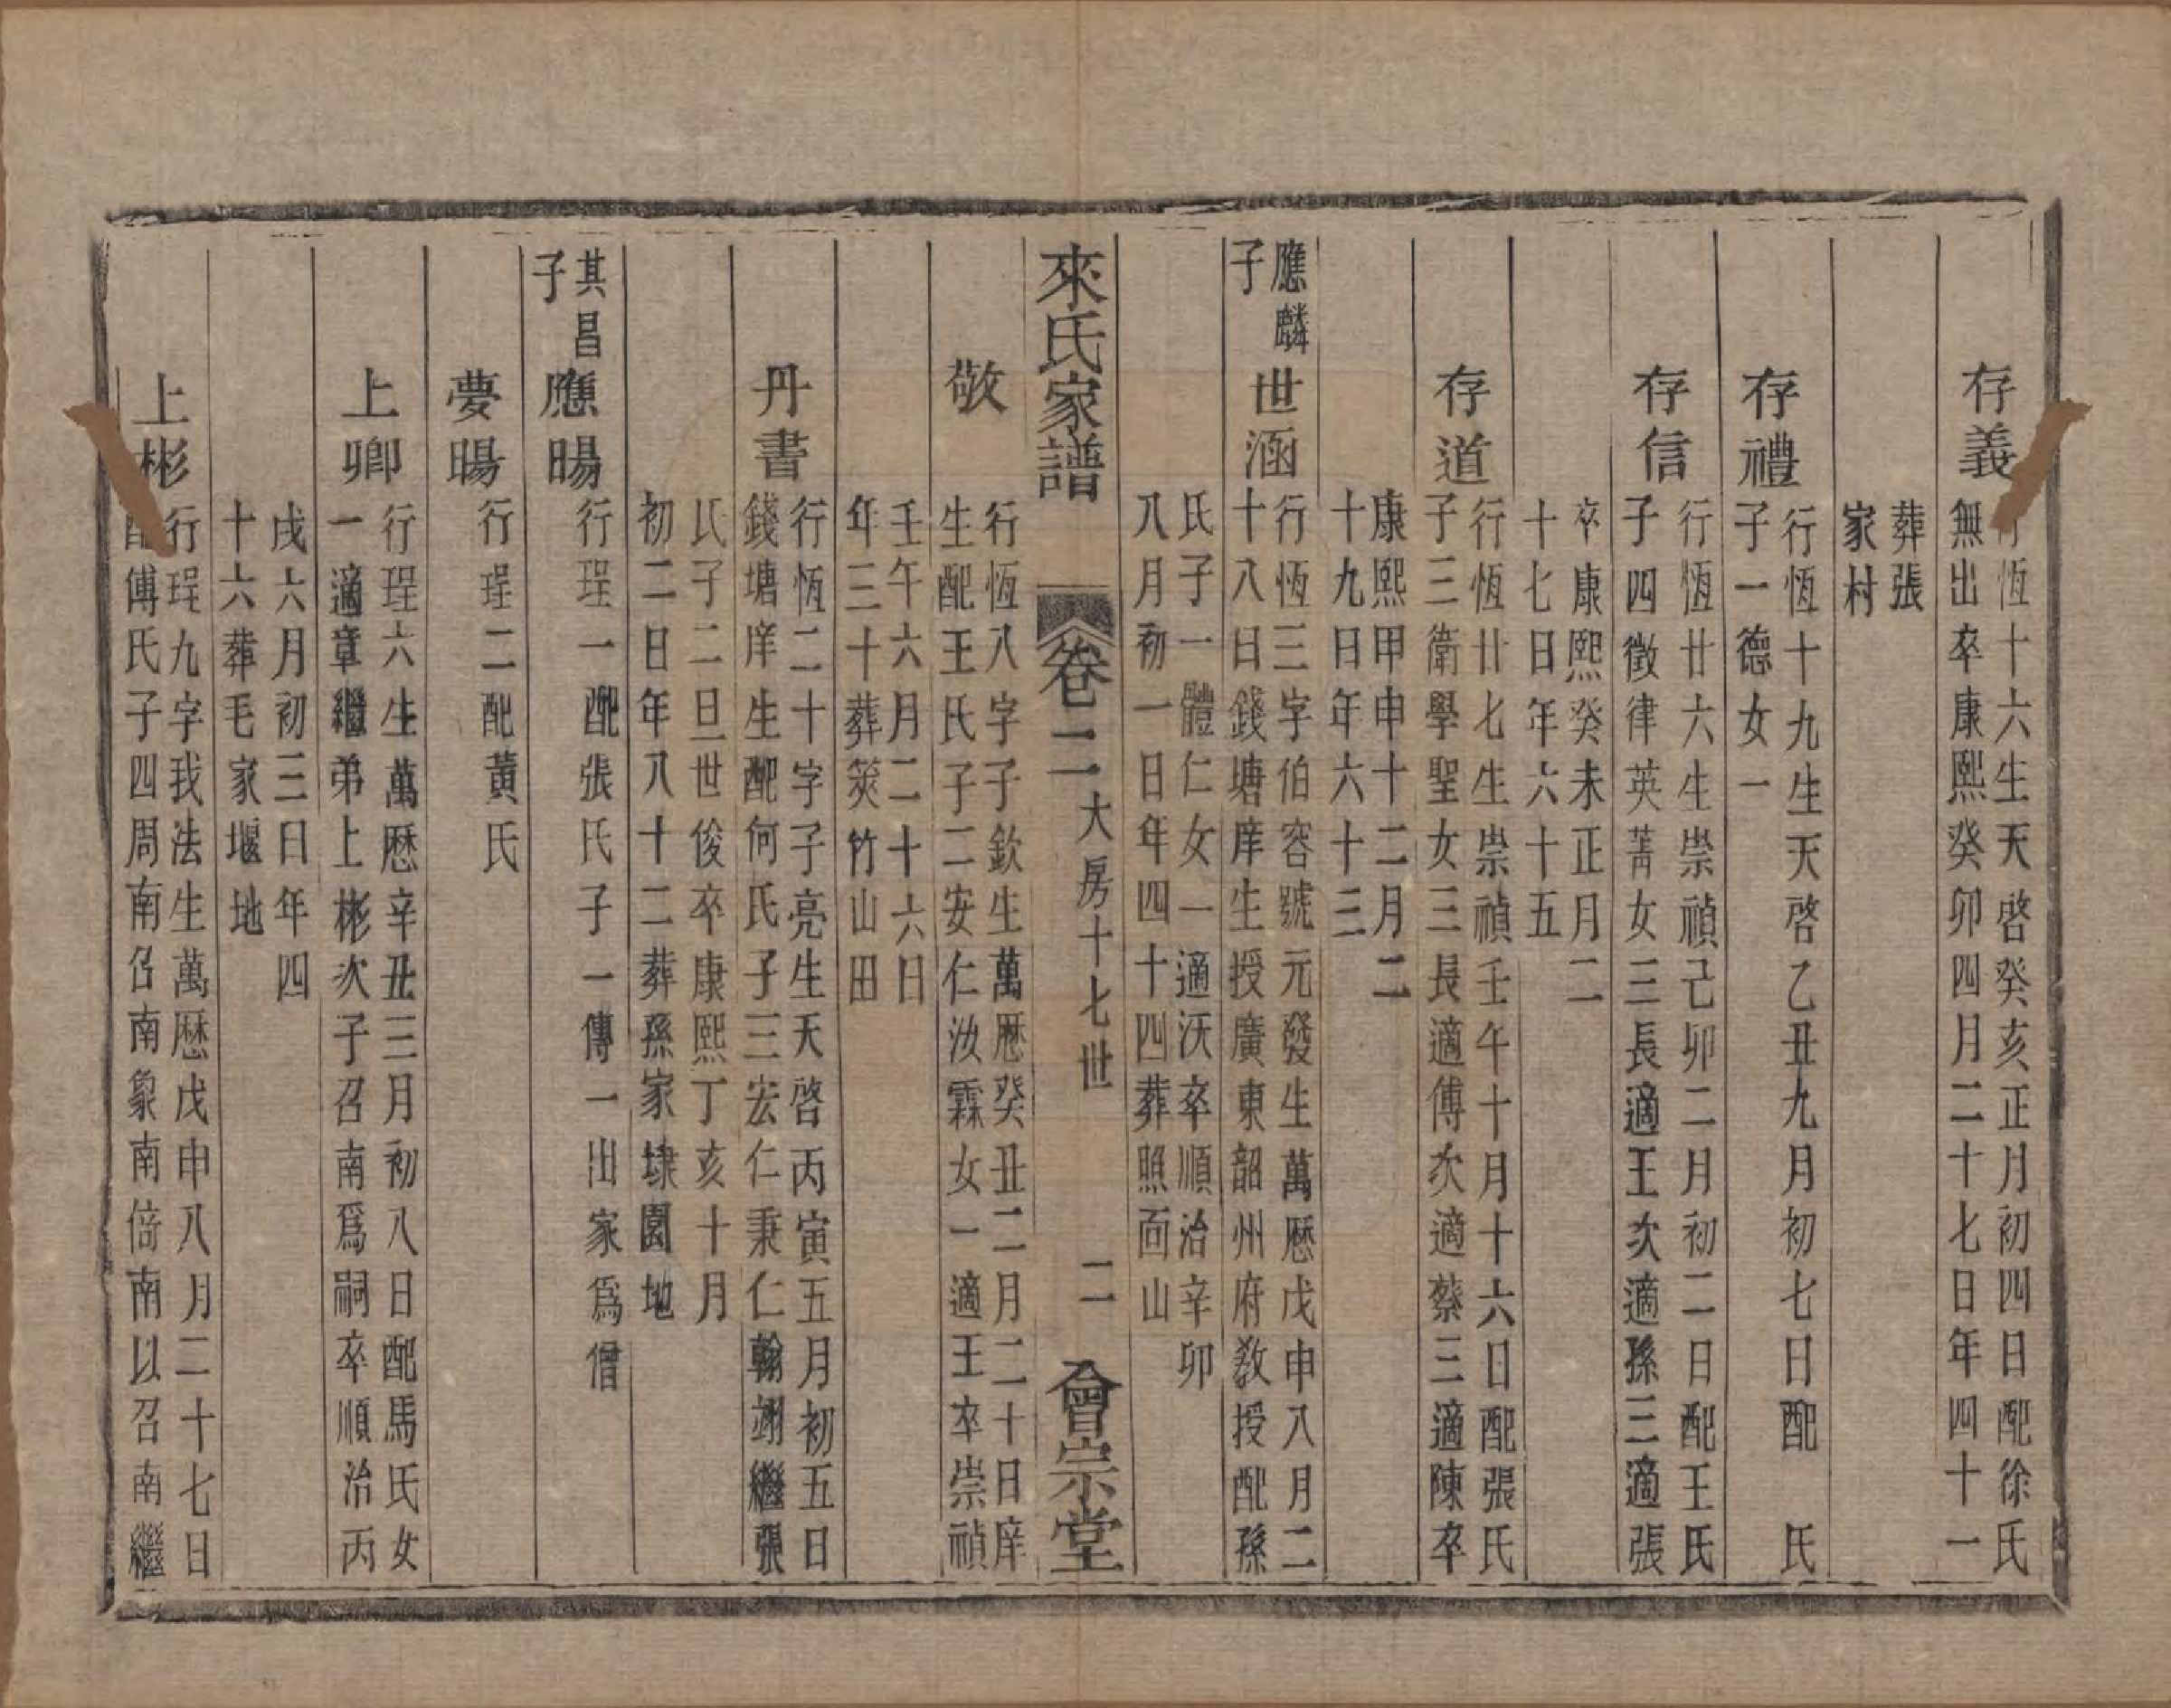 存義
行恆十六生天啓癸亥正月初四日配徐氏
無出卒康熙癸卯四月二十七日年四十一
葬張
家村
存禮
行恆十九生天啓乙丑九月初七日配 氏
子一德女一
存信
行恆廿六生崇禎己卯二月初二日配王氏
子四徵律英菁女三長適王次適孫三適張
卒康熙癸未正月二
十七日年六十五
存道
行恆廿七生崇禎壬午十月十六日配張氏
子三衛學聖女三長適傅次適蔡三適陳卒
康熙甲申十二月二
十九日年六十三
應麟
子
世涵
行恆三字伯容號元發生萬歷戊申八月二
十八日錢塘庠生授廣東韶州府教授配孫
氏子一體仁女一適沃卒順治辛卯
八月初一日年四十四葬照面山
來氏家譜
卷二 大房十七世 二
會宗堂
敬
行恆八字子欽生萬歷癸丑二月二十日庠
生配王氏子二安仁汝霖女一適王卒崇禎
壬午六月二十六日
年三十葬筴竹山田
丹書
行恆二十字子亮生天啓丙寅五月初五日
錢塘庠生配何氏子三宏仁秉仁翰翊繼張
氏子二旦世俊卒康熙丁亥十月
初二日年八十二葬孫家埭園地
其昌
子
應暘
行珵一配張氏子一傳一出家爲僧
夢暘
行珵二配黃氏
上卿
行珵六生萬歷辛丑三月初八日配馬氏女
一適章繼弟上彬次子召南爲嗣卒順治丙
戌六月初三日年四
十六葬毛家堰地
上彬
行珵九字我法生萬歷戊申八月二十七日
配傅氏子四周南召南象南倍南以召南繼